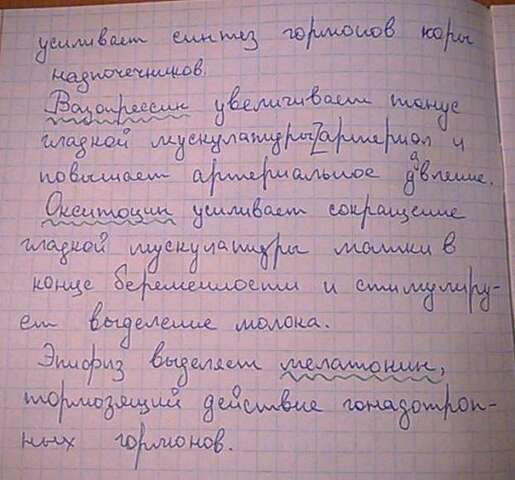 усиливает синтез гормонов коры
надпочечников
Вазопрессин увеличивает тонус
гладкой мускулатуры артериол и
повышает артериальное давление.
Окситоцин усиливает сокращение
гладкой мускулатуры матки в
конце беременности и стимулиру-
ет выделение молока.
Эпифиз выделяет мелатонин,
тормозящий действие гонадотроп-
ных гормонов.